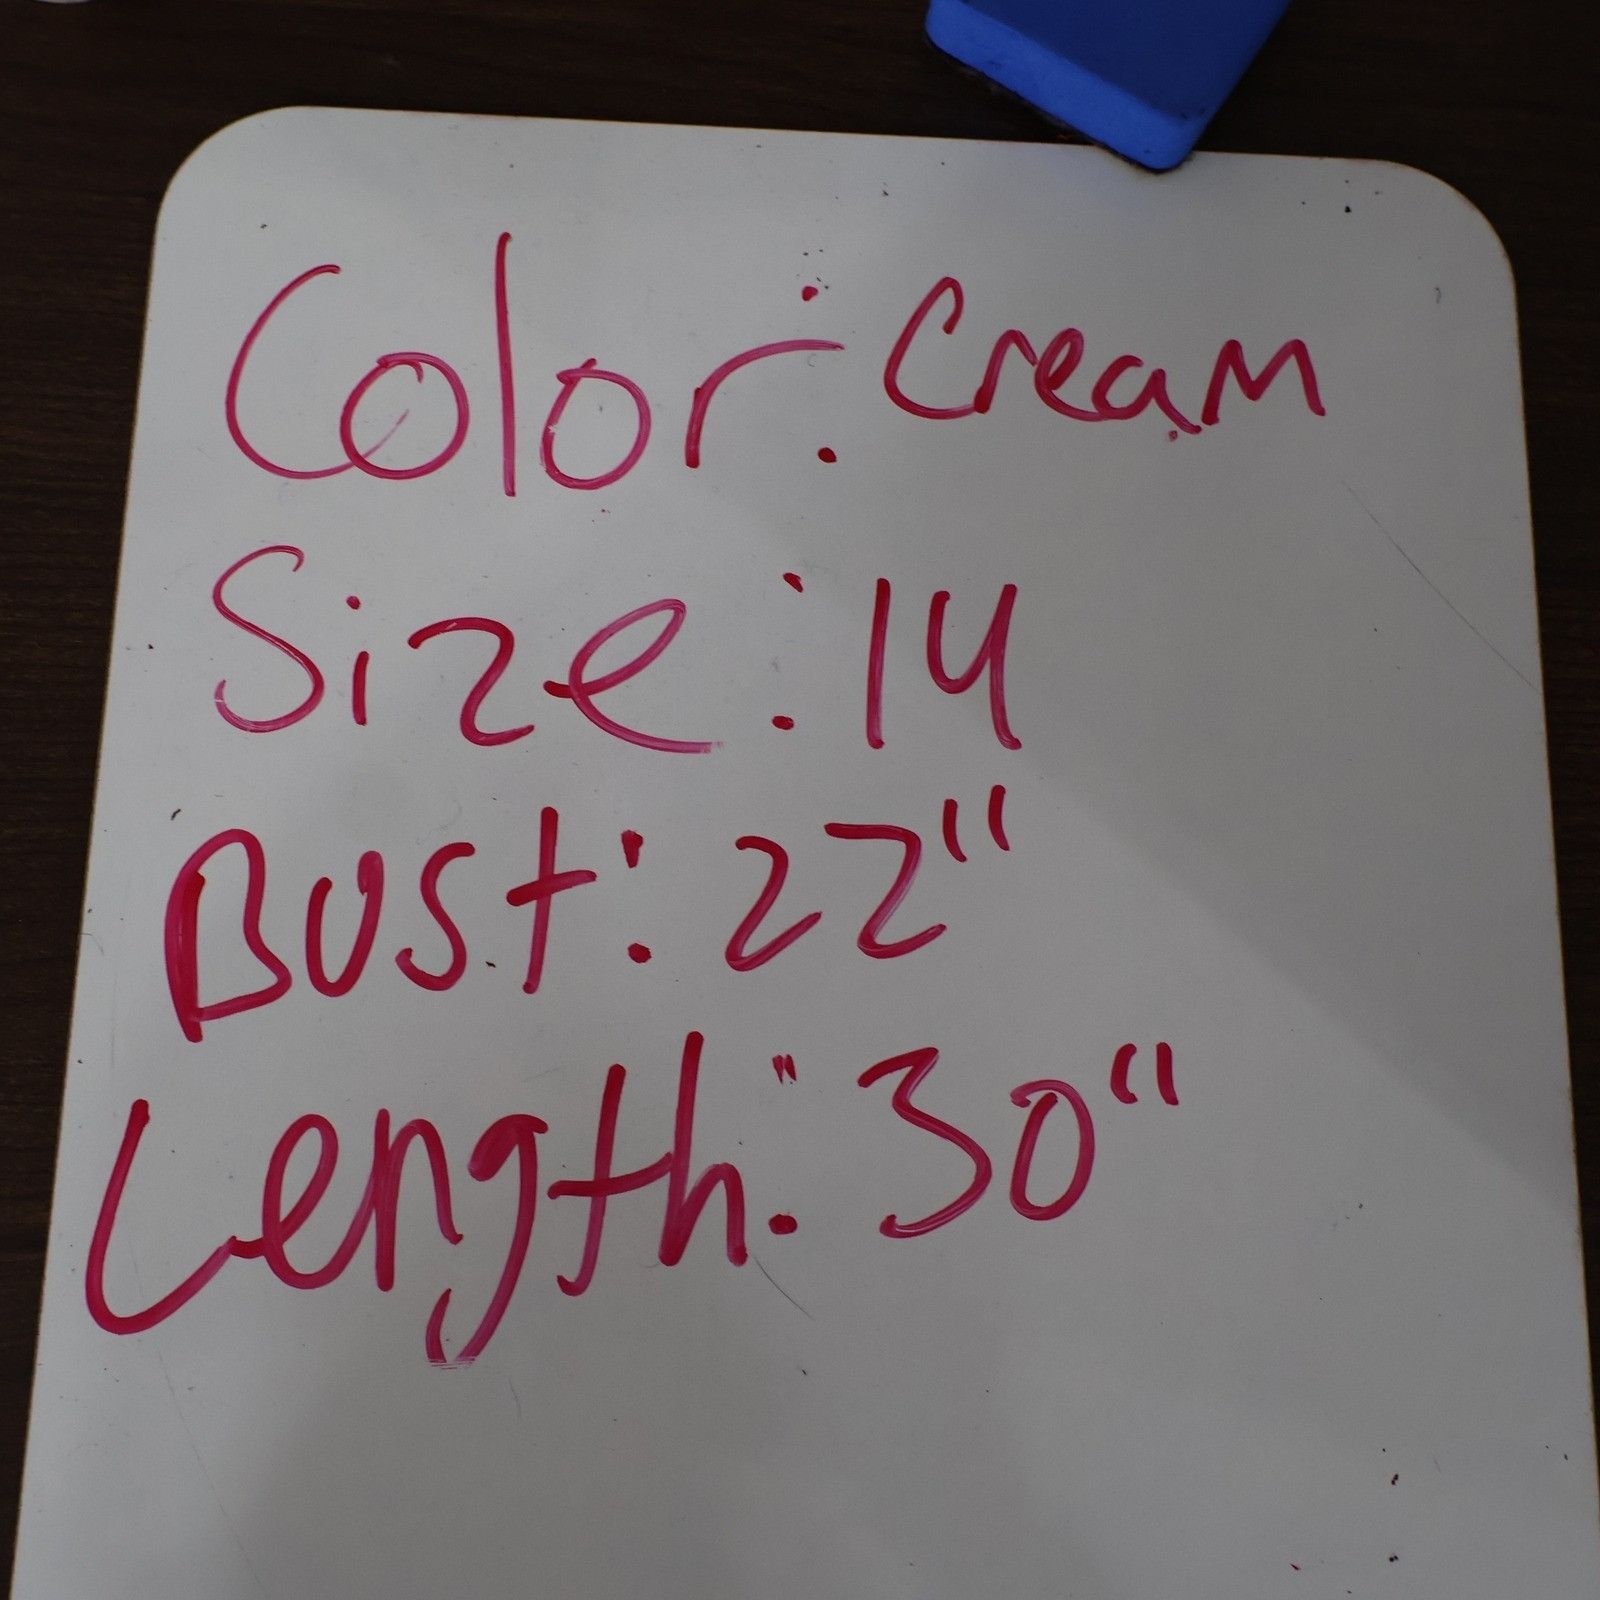 Color: Cream
Size: 14
Bust: 22"
Length: 30"